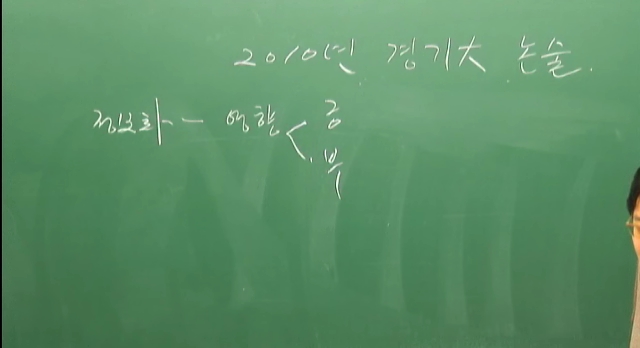 2010년 경기大 논술.
정보화 - 영향 < 긍
부